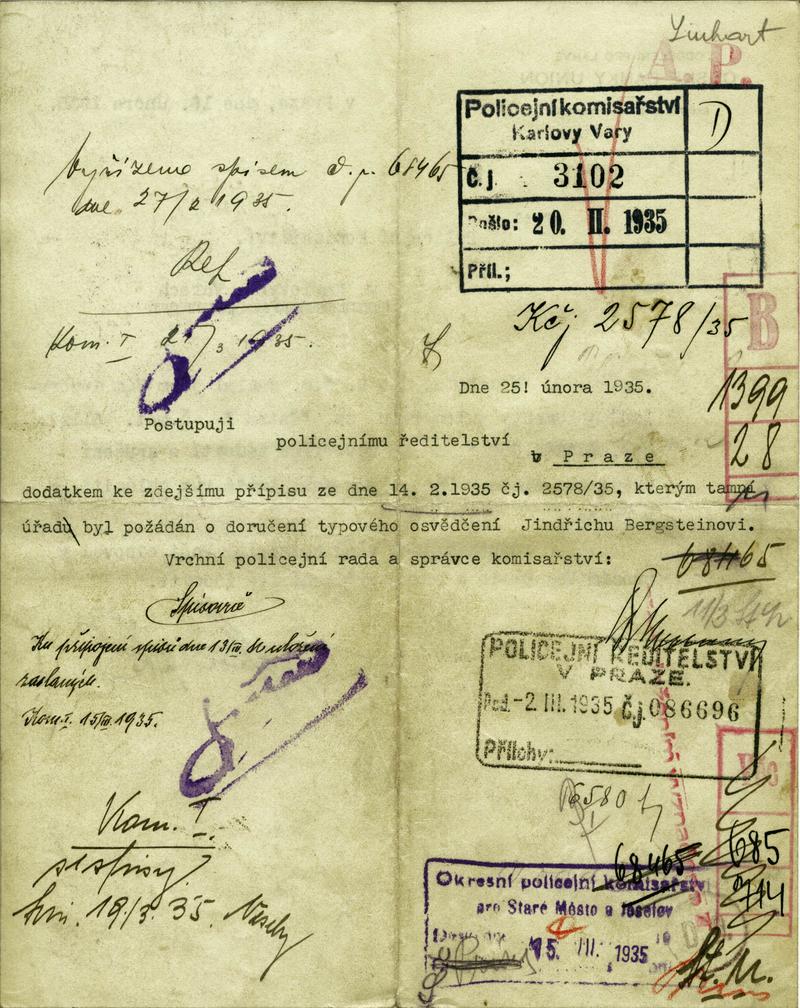 Linhart
A. P.
Policejní komisařství
Karlovy Vary
D
Č.j. 3102
Došlo: 20. II. 1935
Příl.;
Vyřízeno spisem č. p. 68465
dne 27/2 1935.
Ref
Kčj 2578/35
B
Kom. I 2 /3 1935.
Dne 25! února 1935.
1399
28
Postupuji
policejnímu ředitelství
v Praze
dodatkem ke zdejšímu přípisu ze dne 14. 2.1935 čj. 2578/35, kterým tamní
úřadu byl požádán o doručení typového osvědčení Jindřichu Bergsteinovi.
Vrchní policejní rada a správce komisařství:
68465
11/3
Spisovně
Ku připojení spisů dne 13/III. k uložení
zaslaných.
Kom. I. 15/III 1935.
POLICEJNÍ ŘEDITELSTVÍ
V PRAZE.
Pod. -2. III. 1935 čj 086696
Přílohy:
6580
Kom. I.
se spisy
19/3. 35. Veselý
68465
685
714
Okresní policejní komisařství
pro Staré Město a Josefov
15. III. 1935
St. M.